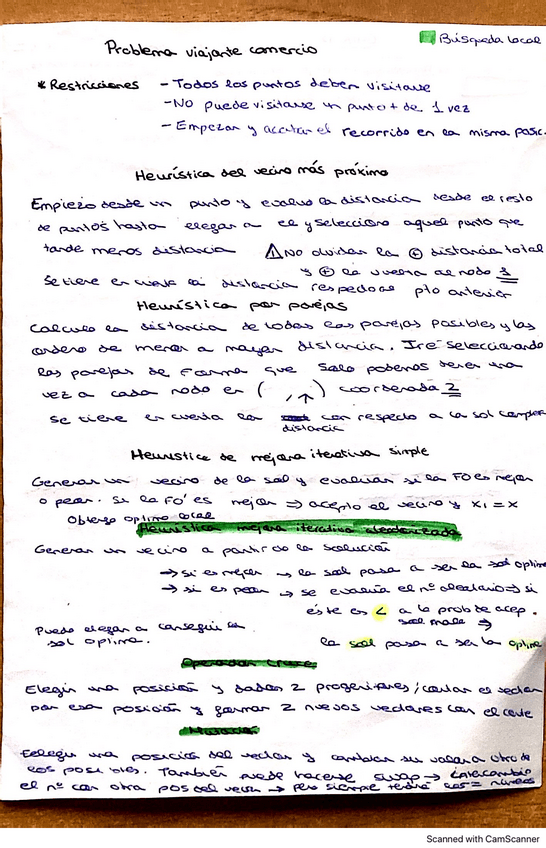 Búsqueda local
Problema viajante comercio
* Restricciones - Todos los puntos deben visitarse
- No puede visitarse un punto + de 1 vez
- Empezar y acabar el recorrido en la misma posic.
Heurística del vecino más próximo
Empiezo desde un punto y evaluo la distancia desde el resto
de puntos hasta llegar a el y selecciono aquel punto que
tarde menos distancia ⚠ No olvidar la ⊕ distancia total
y ⊕ la vuelta al nodo 1
Se tiene en cuenta la distancia respecto al pto anterior
Heurística por parejas
Calculo la distancia de todas las parejas posibles y las
ordeno de menor a mayor distancia. Iré seleccionando
las parejas de forma que solo podemos tener una
vez a cada nodo en ( , ) coordenada 2
↑
se tiene en cuenta la distancia con respecto a la sol completa
Heurística de mejora iterativa simple
Generar un vecino de la sol y evaluar si la FO es mejor
o peor. Si la FO' es mejor ⇒ acepto el vecino y x₁ = x
Obtengo optimo local
Heurística mejora iterativa aleatorizada
Generar un vecino a partir de la solución
→ si es mejor → la sol pasa a ser la sol optima
→ si es peor → se evalúa el nº aleatorio ⇒ si
éste es < a la prob de acep.
sol mala ⇒
Puedo llegar a conseguir la
sol optima.
la sol pasa a ser la optima
Operador Cruce
Elegir una posición y dados 2 progenitores, cortar el vector
por esa posición y formar 2 nuevos vectores con el corte
Mutación
Eelegir una posición del vector y cambiar su valor a otro de
los posibles. También puede hacerse swap → intercambio
el nº con otra pos del vector → pero siempre tendré los = números
Scanned with CamScanner